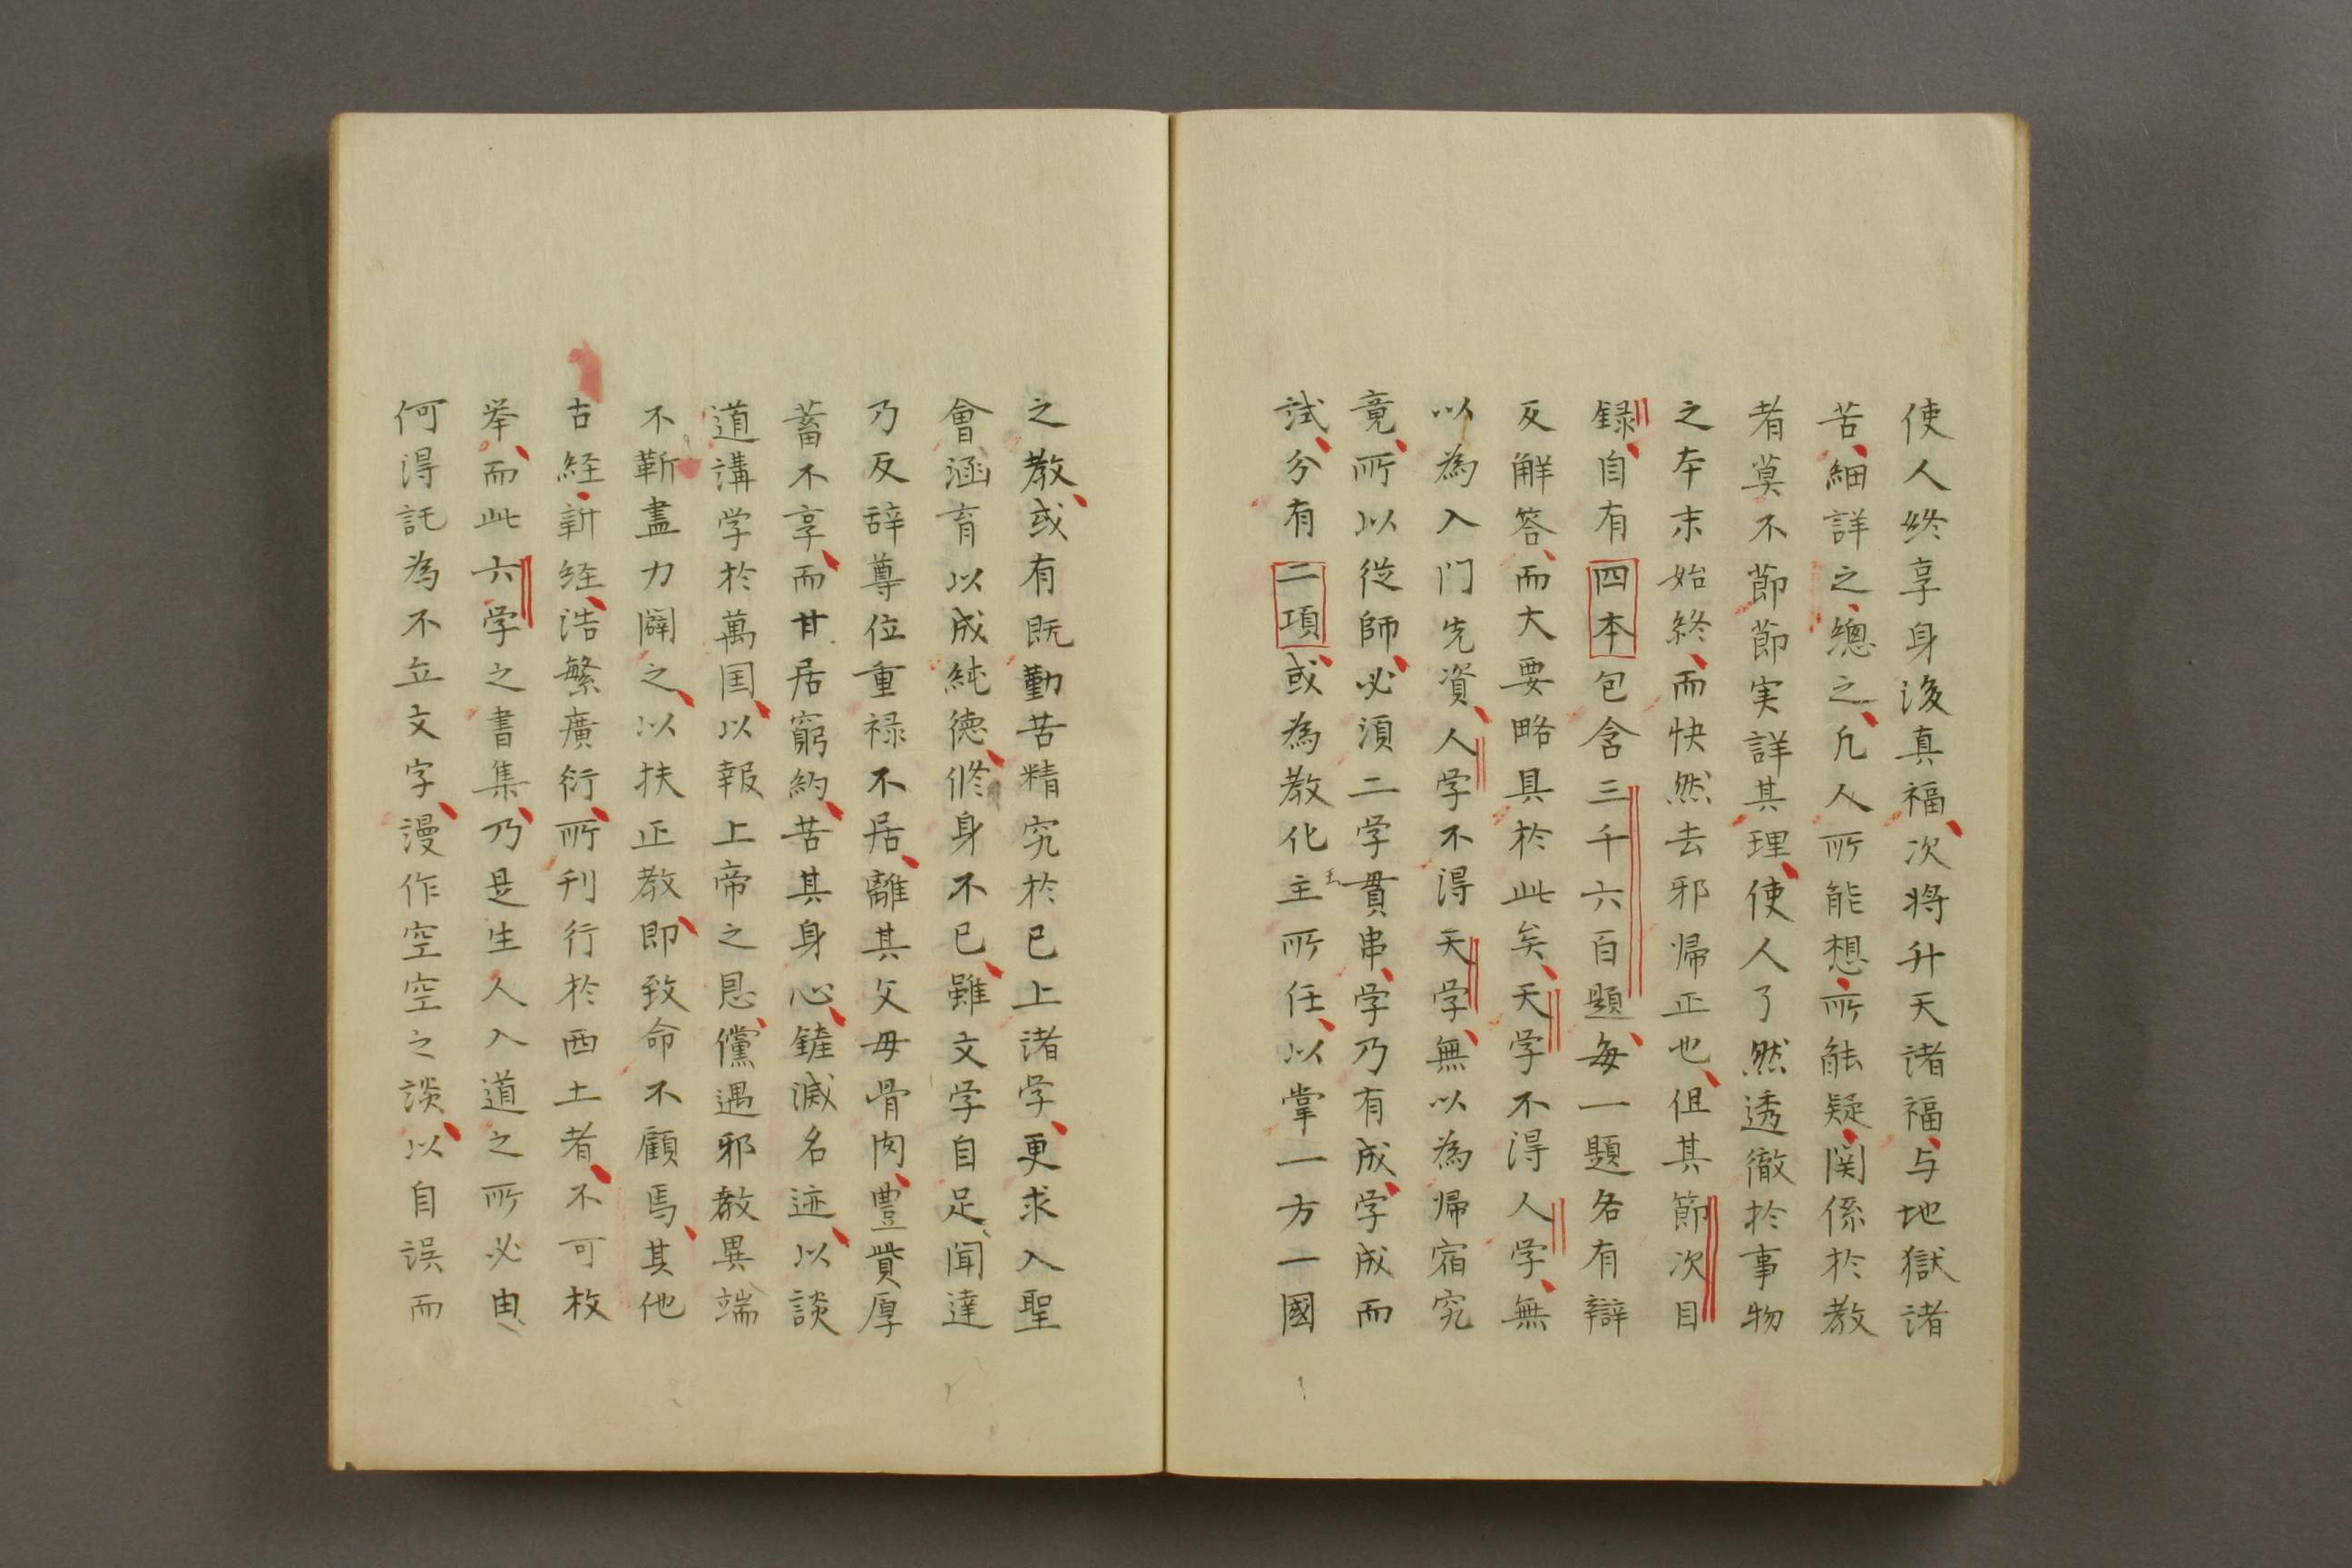 使人終享身後真福次將升天諸福与地獄諸
苦細詳之總之凡人所能想所能疑関係於教
者莫不節節実詳其理使人了然透徹於事物
之本末始終而快然去邪帰正也但其節次目
録自有四本包含三千六百題毎一題各有辯
反解答而大要略具於此矣天学不得人学無
以為入門先資人学不得天学無以為帰宿究
竟所以從師必湏二学貫串学乃有成学成而
試分有二項或為教化主所任以掌一方一國
之教或有既勤苦精究於已上諸学更求入聖
會涵育以成純徳修身不已雖文学自足聞達
乃反辞尊位重禄不居離其父母骨肉豊貲厚
蓄不享而甘居窮約苦其身心鏟滅名迹以談
道講学於萬国以報上帝之恩儻遇邪教異端
不靳盡力闢之以扶正教即致命不顧焉其他
古経新経浩繁廣衍所刊行於西土者不可枚
挙而此六学之書集乃是生人入道之所必由
何得託為不立文字漫作空空之談以自誤而